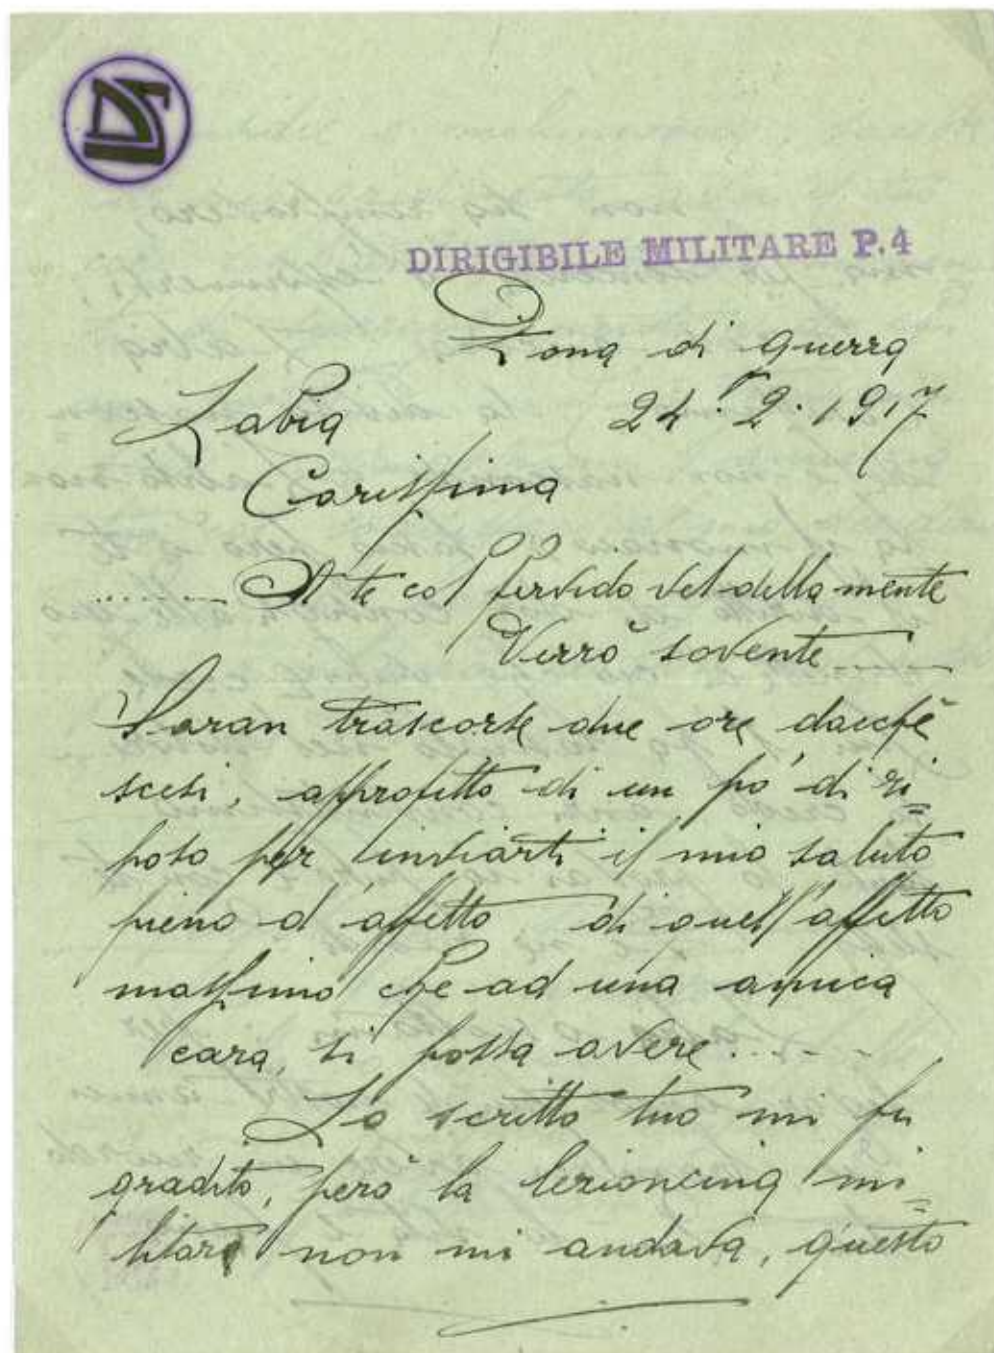 DIRIGIBILE MILITARE P.4
Zona di guerra
Labia 24.2.1917
Carissima
........ A te col fervido vol della mente
Verrò sovente........
Saran trascorse due ore dacchè
scesi, approfitto di un pò di ri=
poso per inviarti il mio saluto
pieno d'affetto di quell'affetto
massimo che ad una amica
cara, si possa avere.....
Lo scritto tuo mi fu
gradito, però la lezioncina mi=
litare non mi andava, questo